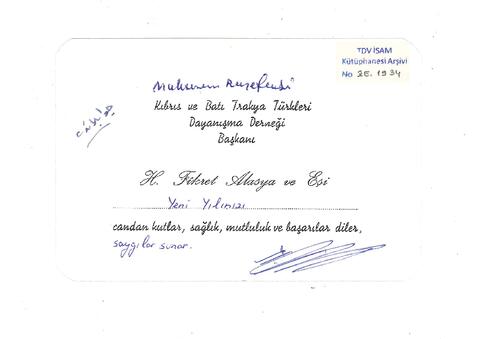 TDV İSAM
Kütüphanesi Arşivi
No 2E. 1934
Kıbrıs ve Batı Trakya Türkleri
Dayanışma Derneği
Başkanı
H. Fikret Alasya ve Eşi
Yeni Yılınızı
candan kutlar, sağlık, mutluluk ve başarılar diler,
saygılar sunar.